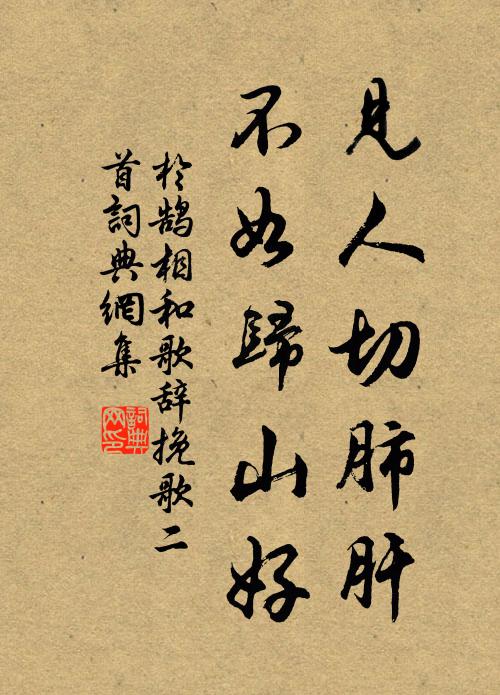 見人切肺肝
不如歸山好
於鵠相和歌辞挽歌二
首詞典網集
詞典网印